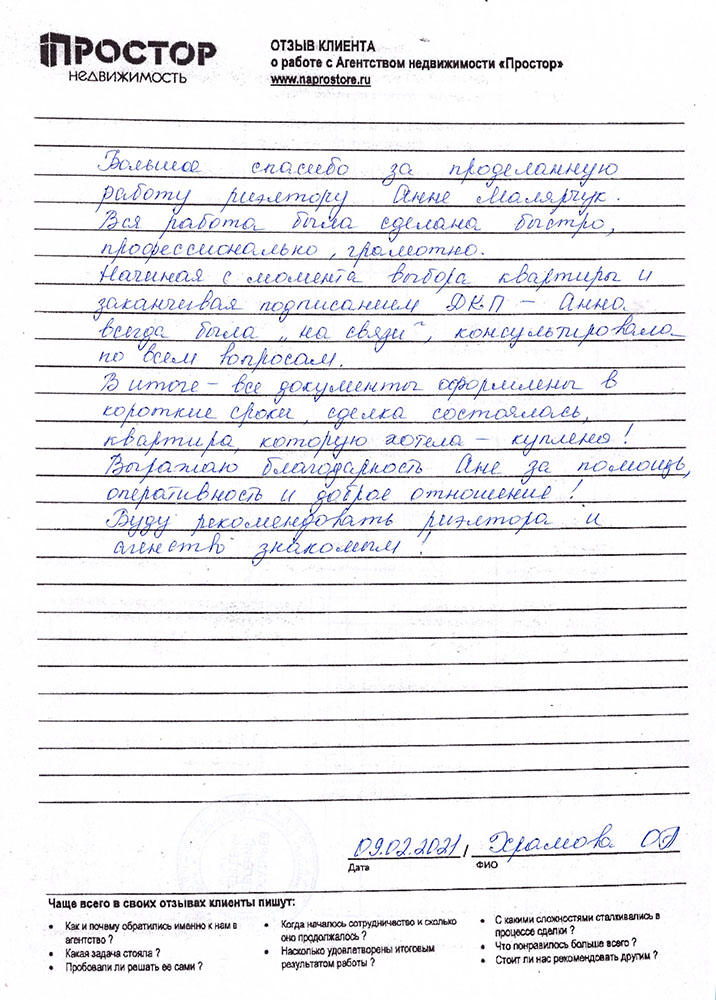 ПРОСТОР
НЕДВИЖИМОСТЬ
ОТЗЫВ КЛИЕНТА
о работе с Агентством недвижимости «Простор»
www.naprostore.ru
Большое спасибо за проделанную
работу риэлтору Анне Малярчук.
Вся работа была сделана быстро,
профессионально, грамотно.
Начиная с момента выбора квартиры и
заканчивая подписанием ДКП – Анна
всегда была „на связи“, консультировала
по всем вопросам.
В итоге – все документы оформлены в
короткие сроки, сделка состоялась,
квартира, которую хотела – куплена!
Выражаю благодарность Ане за помощь,
оперативность и доброе отношение!
Буду рекомендовать риэлтора и
агенство знакомым!
09.02.2021 / Храмова
Дата ФИО
Чаще всего в своих отзывах клиенты пишут:
• Как и почему обратились именно к нам в
агентство ?
• Какая задача стояла ?
• Пробовали ли решать ее сами ?
• Когда началось сотрудничество и сколько
оно продолжалось ?
• Насколько удовлетворены итоговым
результатом работы ?
• С какими сложностями сталкивались в
процессе сделки ?
• Что понравилось больше всего ?
• Стоит ли нас рекомендовать другим ?